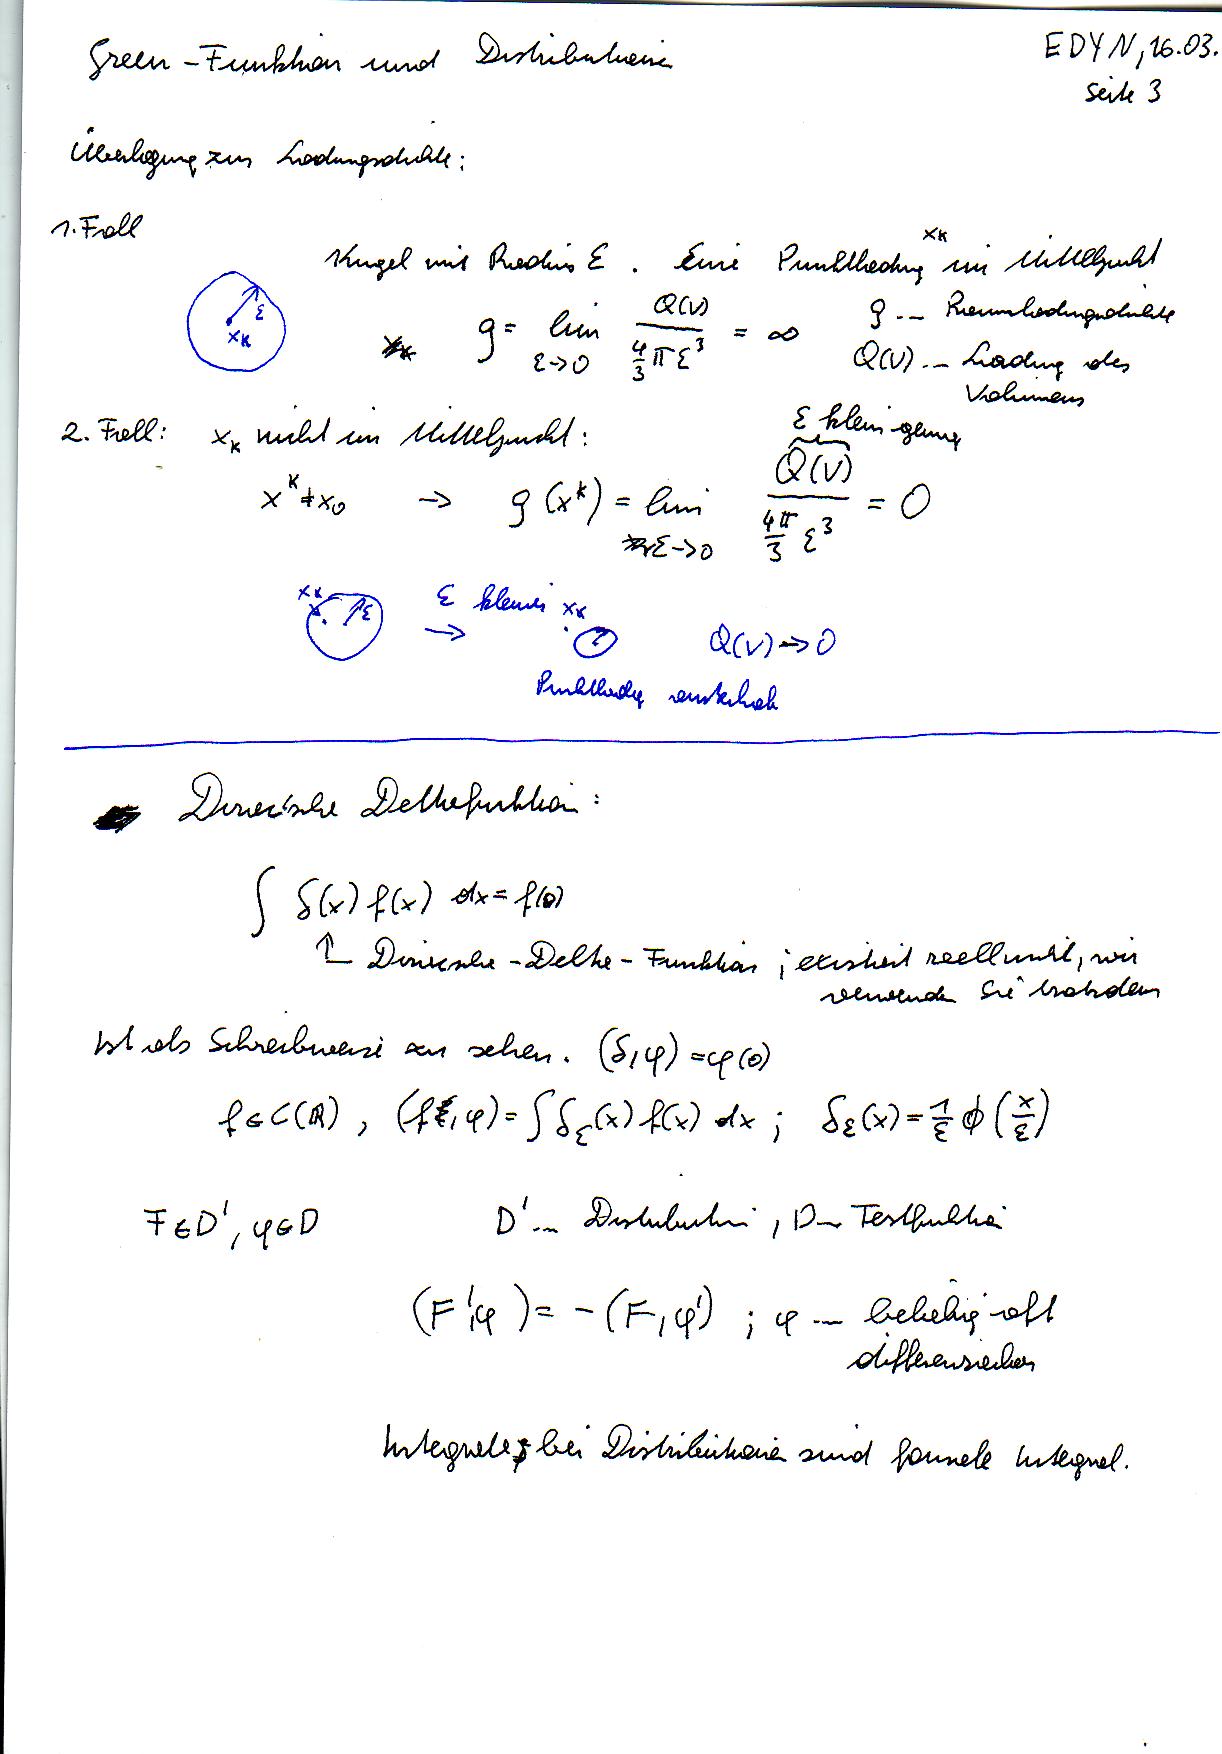 Green-Funktion und Distributionen
EDYN, 16.03.
Seite 3
Überlegung zur Ladungsdichte:
1. Fall
Kugel mit Radius ε. Eine Punktladung x_k im Mittelpunkt
ε
x_k
ρ = lim_{ε→0} Q(V) / (4/3 π ε³) = ∞
ρ ... Raumladungsdichte
Q(V) ... Ladung des
Volumens
2. Fall: x_k nicht im Mittelpunkt:
ε klein genug
x^k ≠ x_0 → ρ(x^k) = lim_{ε→0} Q(V) / (4π/3 ε³) = 0
x_k ε → ε kleiner x_k Q(V) → 0
Punktladung ausserhalb
Diracsche Deltafunktion:
∫ δ(x) f(x) dx = f(0)
↑ Diracsche-Delta-Funktion; existiert reell nicht, wir
verwenden sie trotzdem
Ist als Schreibweise zu sehen. (δ,φ) = φ(0)
f ∈ C(ℝ), (f,φ) = ∫ δ_ε(x) f(x) dx ; δ_ε(x) = 1/ε ϕ(x/ε)
F ∈ D', φ ∈ D D' ... Distribution, D ... Testfunktion
(F',φ) = -(F,φ') ; φ ... beliebig oft
differenzierbar
Integrale bei Distributionen sind formale Integral.